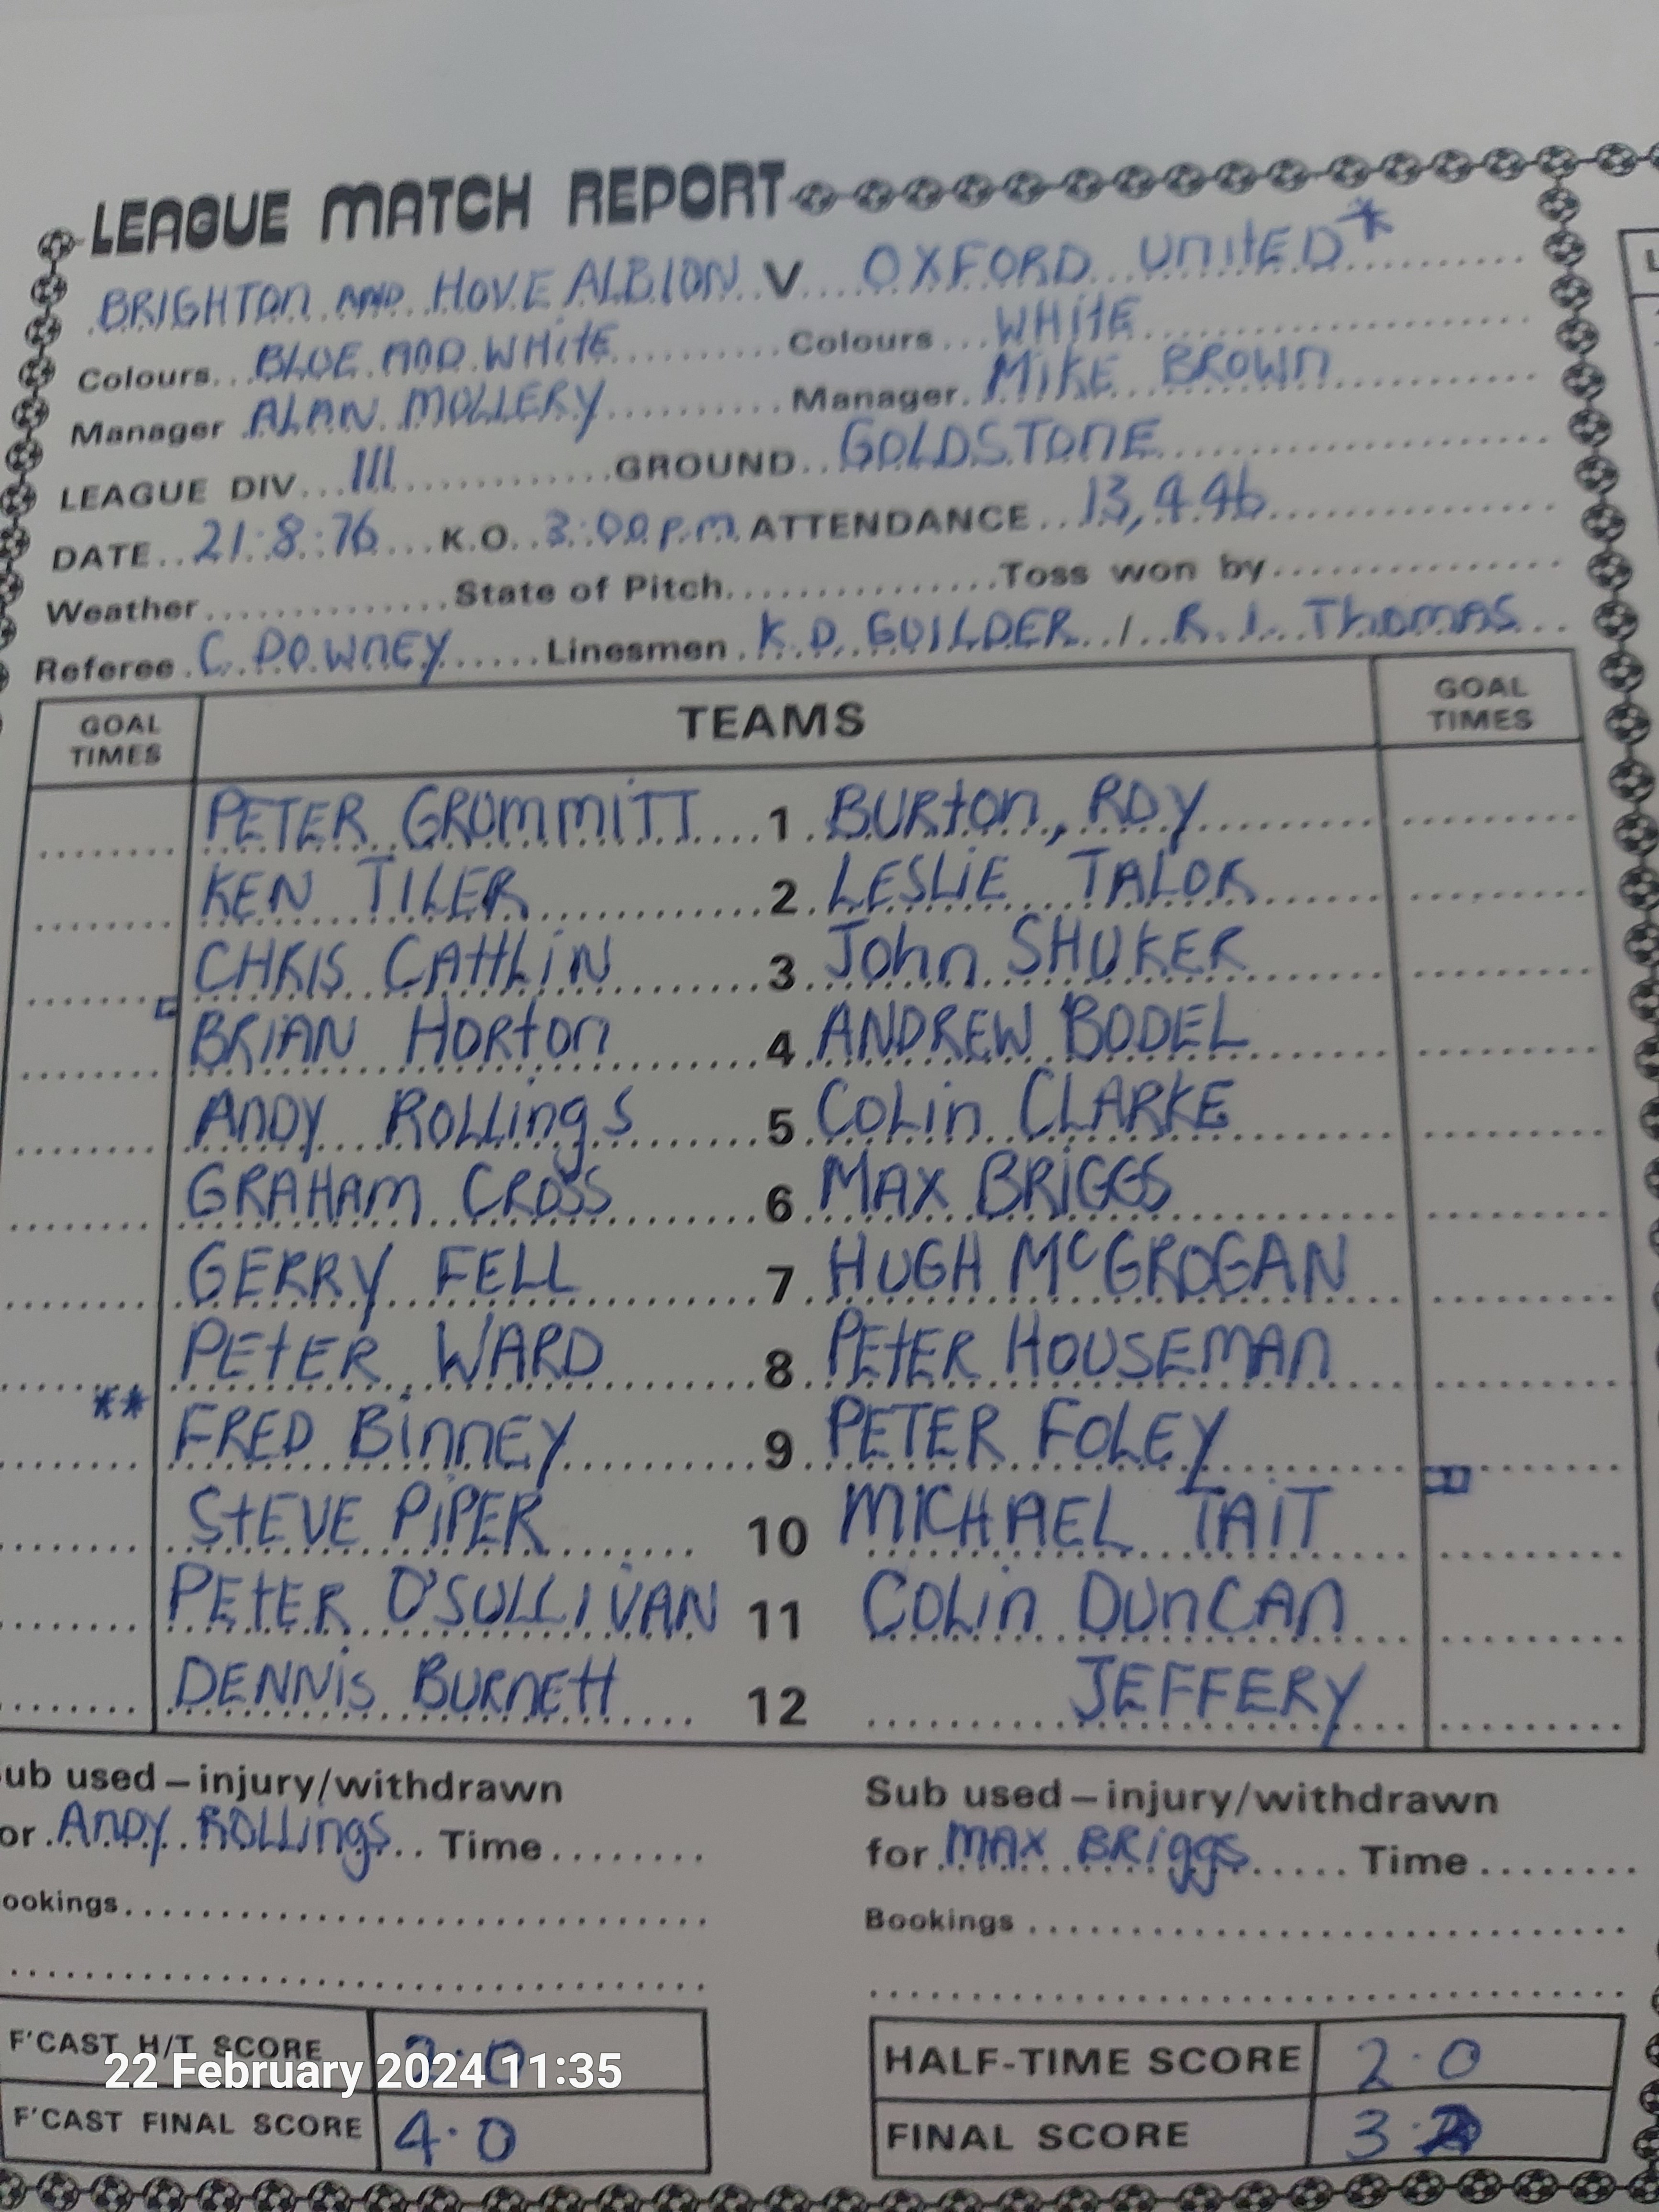 LEAGUE MATCH REPORT
BRIGHTON AND HOVE ALBION V OXFORD UNITED*
Colours BLUE AND WHITE Colours WHITE
Manager ALAN MULLERY Manager MIKE BROWN
LEAGUE DIV III GROUND GOLDSTONE
DATE 21:8:76 K.O. 3:00 p.m. ATTENDANCE 13,446
Weather State of Pitch Toss won by
Referee C. DOWNEY Linesmen K.D. GUILDER / R.L. THOMAS
GOAL TIMES TEAMS GOAL TIMES
PETER GRUMMITT 1 BURTON, ROY
KEN TILER 2 LESLIE TALOR
CHRIS CATTLIN 3 John SHUKER
BRIAN HORTON 4 ANDREW BODEL
ANDY ROLLINGS 5 COLIN CLARKE
GRAHAM CROSS 6 MAX BRIGGS
GERRY FELL 7 HUGH McGROGAN
PETER WARD 8 PETER HOUSEMAN
** FRED BINNEY 9 PETER FOLEY
STEVE PIPER 10 MICHAEL TAIT
PETER O'SULLIVAN 11 COLIN DUNCAN
DENNIS BURNETT 12 JEFFERY
ub used – injury/withdrawn Sub used – injury/withdrawn
or ANDY ROLLINGS Time for MAX BRIGGS Time
ookings Bookings
F'CAST H/T SCORE HALF-TIME SCORE 2·0
22 February 2024 11:35
F'CAST FINAL SCORE 4·0 FINAL SCORE 3·2